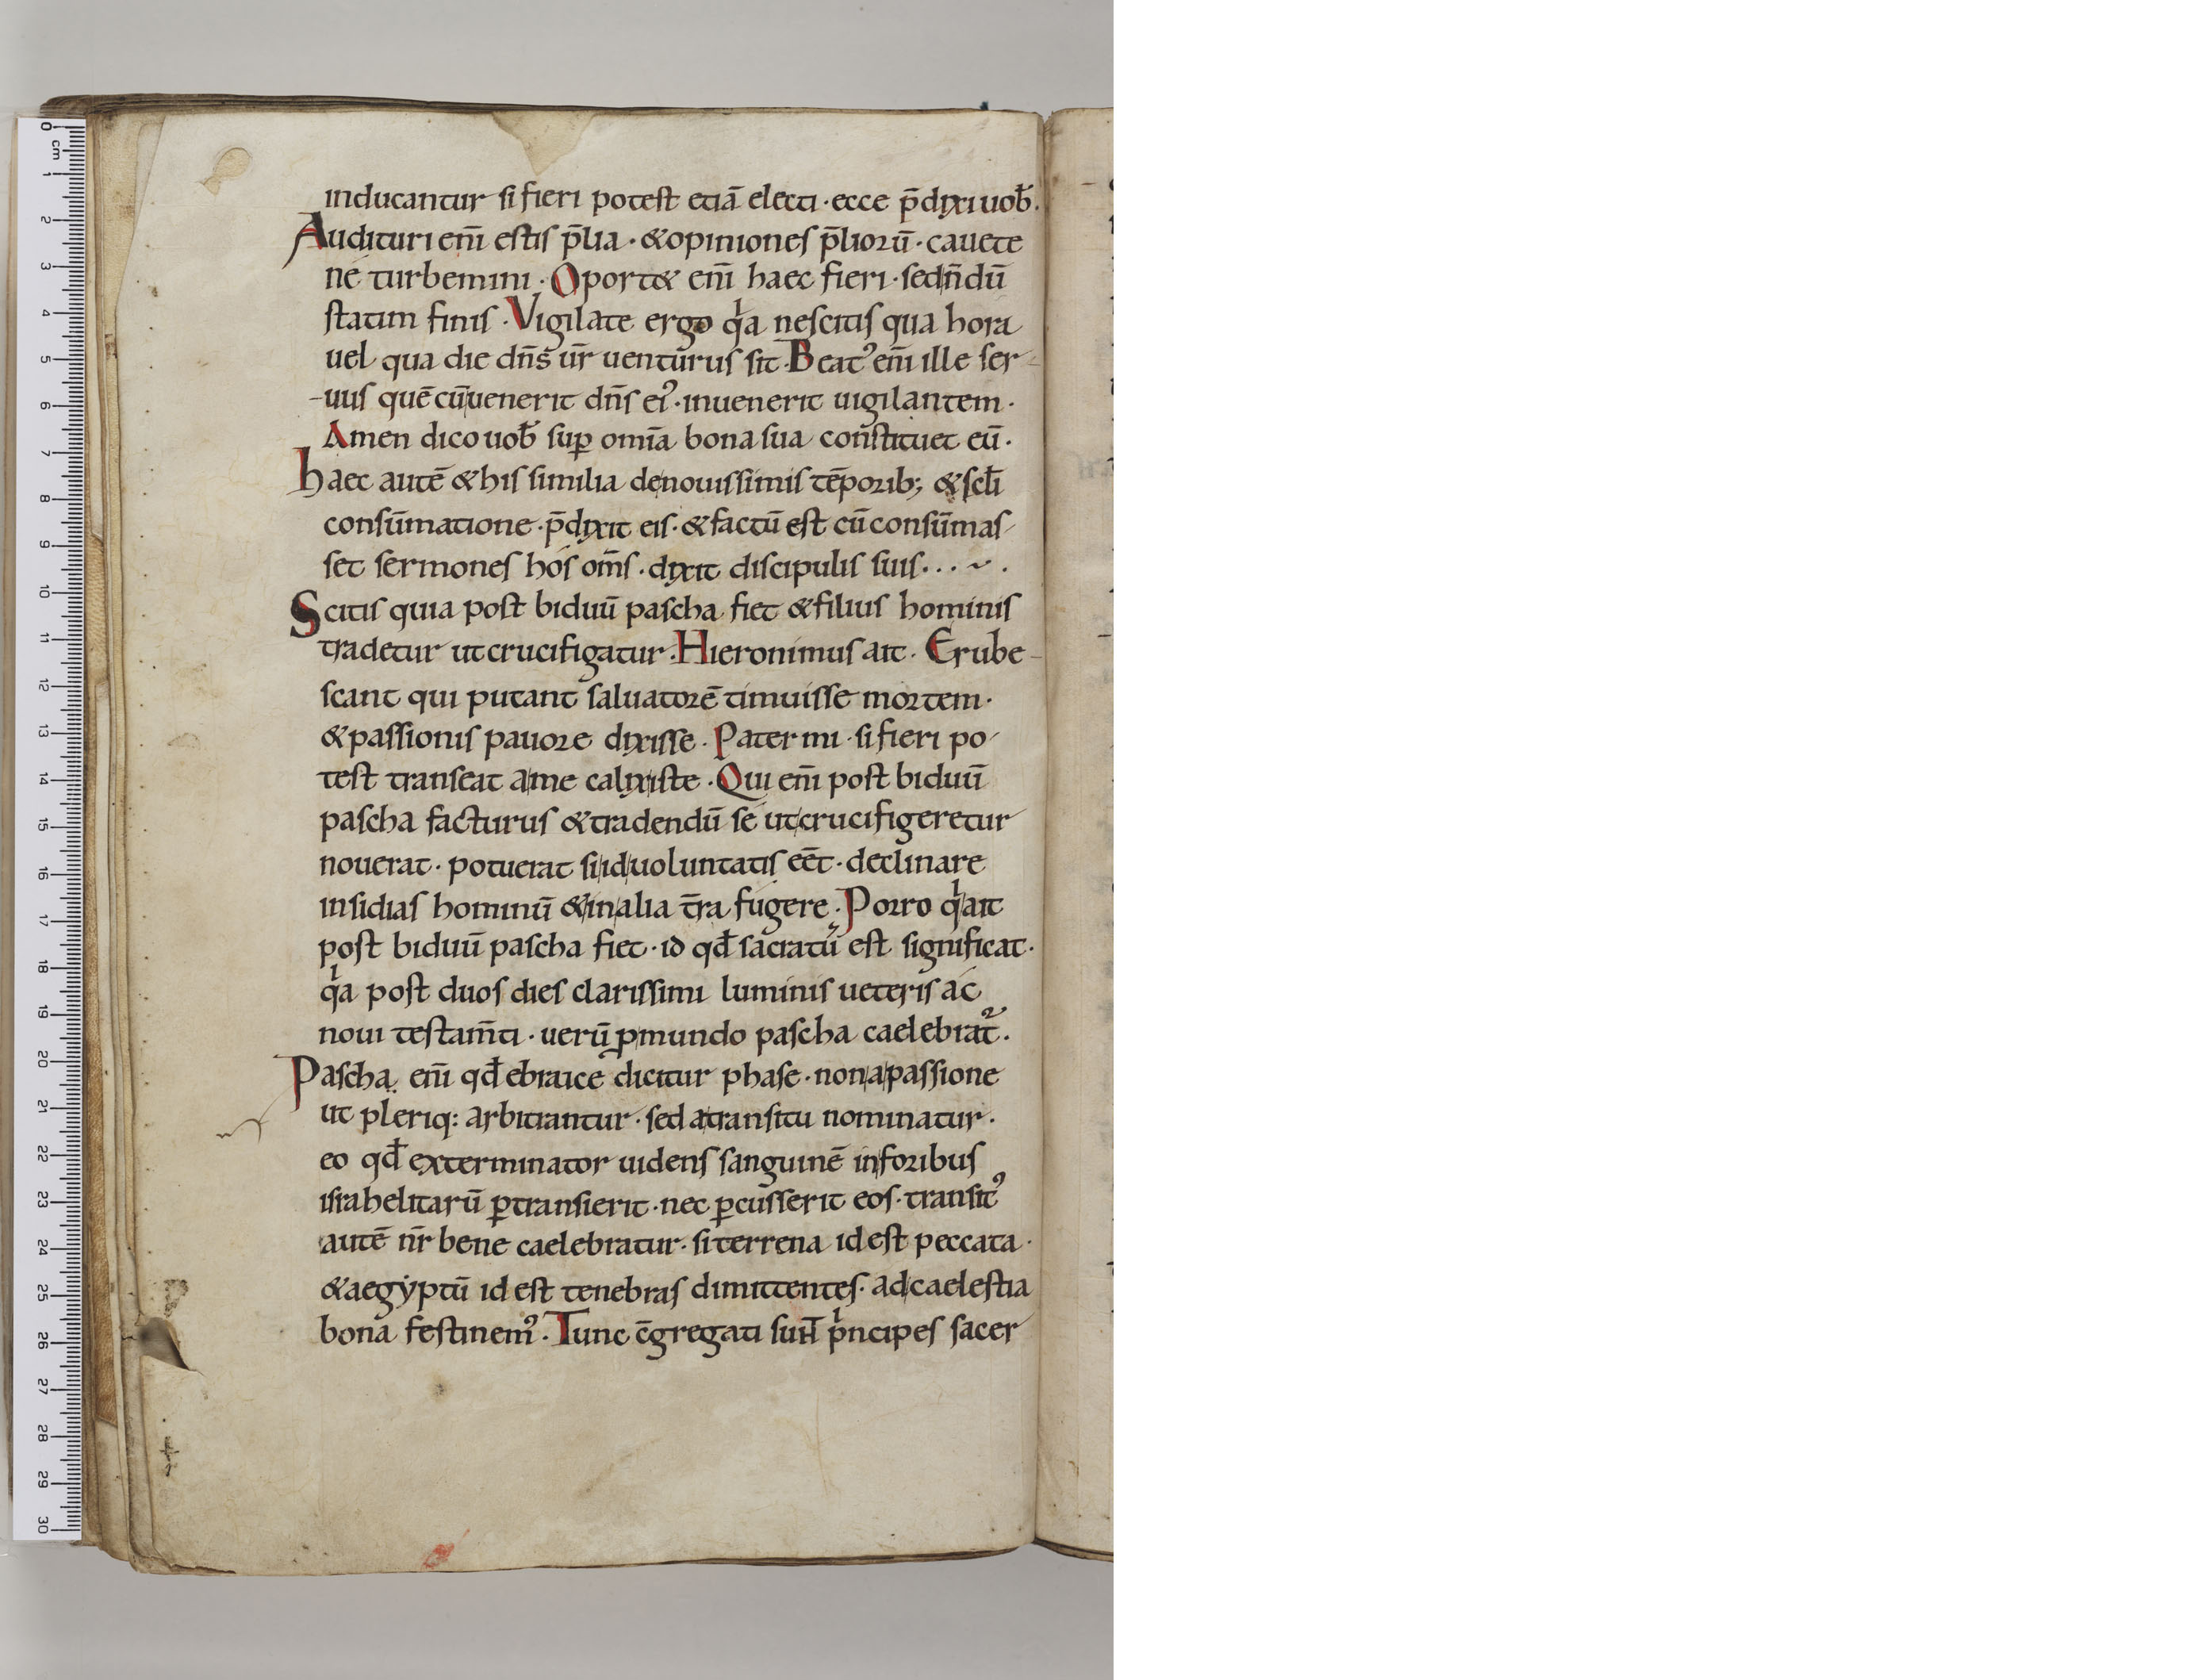 inducantur si fieri potest etiā electi · ecce p̄dixi uob̄.
Audituri eni͂ estis p̄lia · & opiniones p̄liorū · cauete
ne turbemini · Oport& eni͂ haec fieri · sed n̄dū
statim finis · Vigilate ergo qⁱa nescitis qua hora
uel qua die dn̄s ur̄ uenturus sit · Beatꝰ eni͂ ille ser-
-uus quē cū uenerit dn̄s eiꝰ · inuenerit uigilantem ·
Amen dico uob̄ suꝑ om̄ia bona sua constituet eū ·
haec autē & his similia de nouissimis tēporib; & scl̄i
consūmatione · p̄dixit eis · & factū est cū consūmas-
set sermones hos om̄s · dixit discipulis suis · . . ~ .
Scitis quia post biduū pascha fiet & filius hominis
tradetur ut crucifigatur · Hieronimus ait · Erube-
scant qui putant saluatorē timuisse mortem ·
& passionis pauore dixisse · Pater mi · si fieri po-
test transeat a me calix iste · Qui eni͂ post biduū
pascha facturus & tradendū se ut crucifigeretur
nouerat · potuerat si id uoluntatis eēt · declinare
insidias hominū & in alia t̄ra fugere · Porro qⁱ ait
post biduū pascha fiet · id qđ sacratū est significat ·
qⁱa post duos dies clarissimi luminis ueteris ac
noui testam̄ti · uerū ꝓ mundo pascha caelebrat᷑.
Pascha eni͂ qđ ebraice dicitur phase · non a passione
ut pleriq: arbitrantur · sed a transitu nominatur ·
eo qđ exterminator uidens sanguinē in foribus
israhelitarū ꝑtransierit · nec ꝑcusserit eos · transitꝰ
autē nr̄ bene caelebratur · si terrena id est peccata ·
& aegyptū id est tenebras dimittentes · ad caelestia
bona festinemꝰ · Tunc c̄gregati sunt pⁱncipes sacer
0 cm 1 2 3 4 5 6 7 8 9 10 11 12 13 14 15 16 17 18 19 20 21 22 23 24 25 26 27 28 29 30